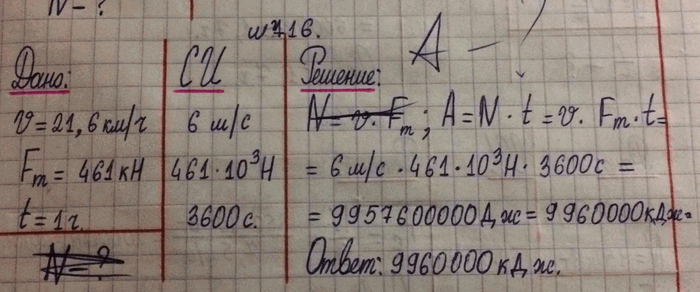 N - ?
№716.
A -
Дано:
СИ
Решение:
v = 21,6 км/ч
6 м/с
N = v · Fт; A = N · t = v · Fт · t =
Fт = 461 кН
461 · 10³ Н
= 6 м/с · 461 · 10³ Н · 3600 с =
t = 1 ч.
3600 с.
= 9957600000 Дж = 9960000 кДж =
N - ?
Ответ: 9960000 кДж.